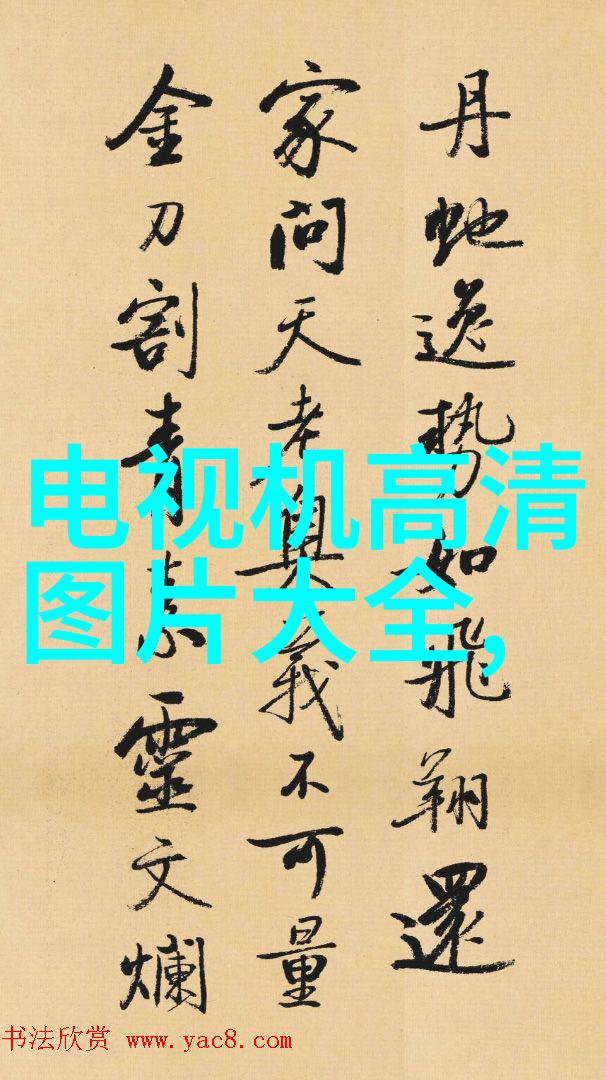 丹虵逸勢如飛翔還
家問天老奥義不可量
金刀割青素靈文爛
电视机高清
图片大全,
书法欣赏 www.yac8.com